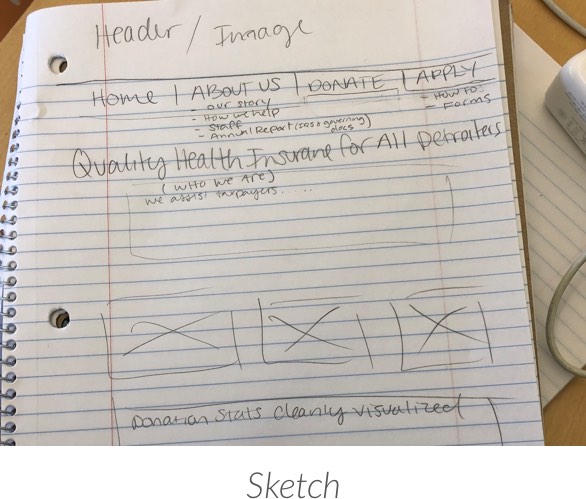 Header / Image
Home | ABOUT US | DONATE | APPLY
- our story
- How we help
- Staff
- Annual Report (990s & governing docs)
- How to
- Forms
Quality Health Insurane for All Detroiters
(WHO WE ARE)
We assist taxpayers.....
Donation Stats cleanly visualized
Sketch